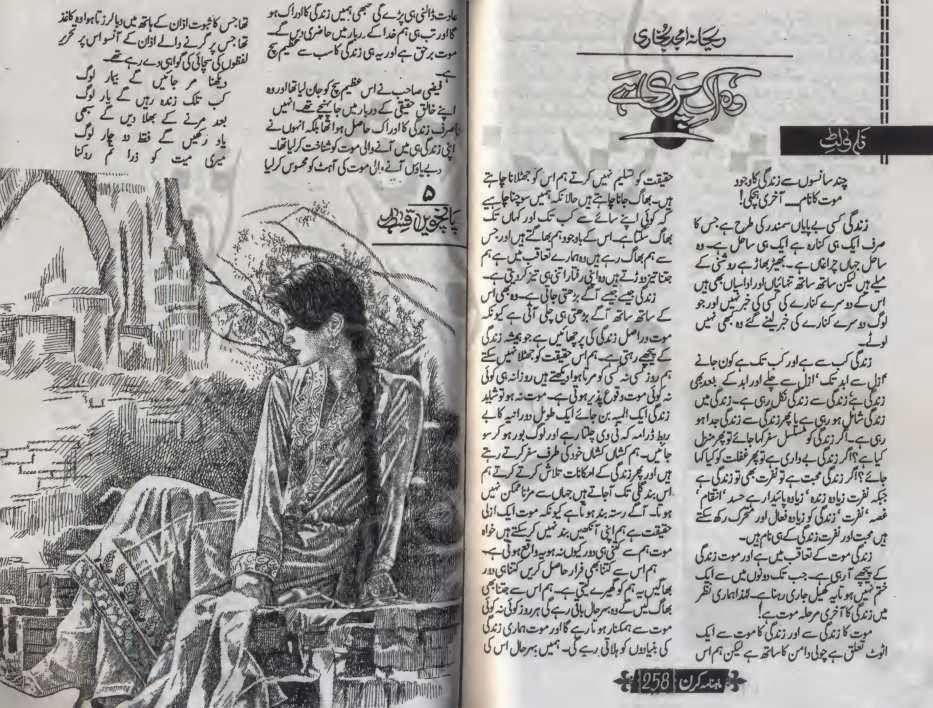 ریحانہ امجد بخاری
وہ اک پری ہے
قسط وار
چند سانسوں سے زندگی کا وجود
موت کا نام۔ آخری ہچکی!
زندگی کسی بے پایاں سمندر کی طرح ہے، جس کا
صرف ایک ہی کنارہ ہے ایک ہی ساحل ہے۔ وہ
ساحل جہاں چراغاں ہے۔ بھیڑ بھاڑ ہے روشنی کے
میلے ہیں لیکن ساتھ ساتھ تنہائیاں اور اداسیاں بھی ہیں
اس کے دوسرے کنارے کی کسی کو خبر نہیں اور جو
لوگ دوسرے کنارے کی خبر لینے گئے وہ بھی نہیں
لوٹے۔
زندگی کب سے ہے اور کب تک ہے کون جانے
ازل سے ابد تک، ازل سے پہلے اور ابد کے بعد بھی
زندگی ہے زندگی سے زندگی نکل رہی ہے۔ زندگی میں
زندگی شامل ہو رہی ہے یا پھر زندگی سے زندگی جدا ہو
رہی ہے۔ اگر زندگی کو مسلسل سفر کہا جائے تو پھر منزل
کیا ہے؟ اگر زندگی بے داری ہے تو پھر غفلت کو کیا کہا
جائے؟ اگر زندگی محبت ہے تو نفرت بھی تو زندگی ہے
جبکہ نفرت زیادہ زندہ، زیادہ پائیدار ہے حسد، انتقام،
غصہ، نفرت، زندگی کو زیادہ فعال اور متحرک رکھ سکتے
ہیں محبت اور نفرت زندگی کے ہی نام ہیں۔
زندگی موت کے تعاقب میں ہے اور موت زندگی
کے پیچھے آ رہی ہے۔ جب تک دونوں میں سے ایک
ختم نہیں ہوتا یہ کھیل جاری رہتا ہے۔ لہٰذا ہماری نظر
میں زندگی کا آخری مرحلہ موت ہے!
موت کا زندگی سے اور زندگی کا موت سے ایک
اٹوٹ تعلق ہے چولی دامن کا ساتھ ہے لیکن ہم اس
حقیقت کو تسلیم نہیں کرتے ہم اس کو جھٹلانا چاہتے
ہیں۔ بھاگ جانا چاہتے ہیں حالانکہ ہمیں سوچنا چاہیے
کہ کوئی اپنے سائے سے کب تک اور کہاں تک
بھاگ سکتا ہے۔ اس کے باوجود ہم بھاگتے ہیں اور جس
سے ہم بھاگ رہے ہیں وہ ہمارے تعاقب میں ہے ہم
جتنا تیز دوڑتے ہیں وہ اپنی رفتار اتنی ہی تیز کر دیتی ہے۔
زندگی جیسے جیسے آگے بڑھتی جاتی ہے۔ وہ بھی اس
کے ساتھ ساتھ آگے بڑھتی ہی چلی آتی ہے کیونکہ
موت دراصل زندگی کی پرچھائیں ہے جو ہمیشہ زندگی
کے پیچھے رہتی ہے۔ ہم اس حقیقت کو جھٹلا نہیں سکتے
ہم روز کسی نہ کسی کو مرتا ہوا دیکھتے ہیں روزانہ ہی کوئی
نہ کوئی موت وقوع پذیر ہوتی ہے۔ موت نہ ہو تو شاید
زندگی ایک المیہ بن جائے ایک طویل دورانیہ کا بے
ربط ڈرامہ کہ ٹی وی چلتا رہے اور لوگ بور ہو کر سو
جائیں۔ ہم کشاں کشاں خود کی طرف سفر کرتے رہتے
ہیں اور پھر زندگی کے امکانات تلاش کرتے کرتے ہم
اس بند گلی تک آ جاتے ہیں جہاں سے مڑنا ممکن نہیں
ہوتا۔ آگے رستہ بند ہوتا ہے کیونکہ موت ایک ازلی
حقیقت ہے ہم اپنی آنکھیں بند نہیں کر سکتے ہیں خواہ
موت ہم سے کتنی ہی دور کیوں نہ ہو یہ واقع ہوتی ہے۔
ہم اس سے کتنا بھی فرار حاصل کریں کتنا ہی دور
بھاگیں یہ ہم کو گھیرے لیتی ہے۔ ہم اس سے جتنا بھی
بھاگ لیں گے وہ بہرحال باقی رہے گی ہر روز کوئی نہ کوئی
موت سے ہمکنار ہوتا رہے گا اور موت ہماری زندگی
کی بنیادوں کو ہلاتی رہے گی۔ ہمیں بہرحال اس کی
ماہنامہ کرن 258
عادت ڈالنی ہی پڑے گی تبھی ہمیں زندگی کا ادراک ہو
گا اور تب ہی ہم خدا کے دربار میں حاضری دیں گے۔
موت برحق ہے اور یہ ہی زندگی کا سب سے عظیم سچ
ہے۔
فیضی صاحب نے اس عظیم سچ کو جان لیا تھا اور وہ
اپنے خالق حقیقی کے دربار میں جا پہنچے تھے۔ انہیں
نا صرف زندگی کا ادراک حاصل ہوا تھا بلکہ انہوں نے
اپنی زندگی ہی میں آنے والی موت کو شناخت کر لیا تھا۔
دبے پاؤں آنے والی موت کی آہٹ کو محسوس کر لیا
تھا جس کا ثبوت اذان کے ہاتھ میں دبا لرزتا ہوا وہ کاغذ
تھا جس پر گرنے والے اذان کے آنسو اس پر تحریر
لفظوں کی سچائی کی گواہی دے رہے تھے۔
دیکھنا مر جائیں گے بیمار لوگ
کب تلک زندہ رہیں گے یار لوگ
بعد مرنے کے بھلا دیں گے سبھی
یاد رکھیں گے فقط دو چار لوگ
میری میت کو ذرا تم روکنا
۵
پانچویں قسط